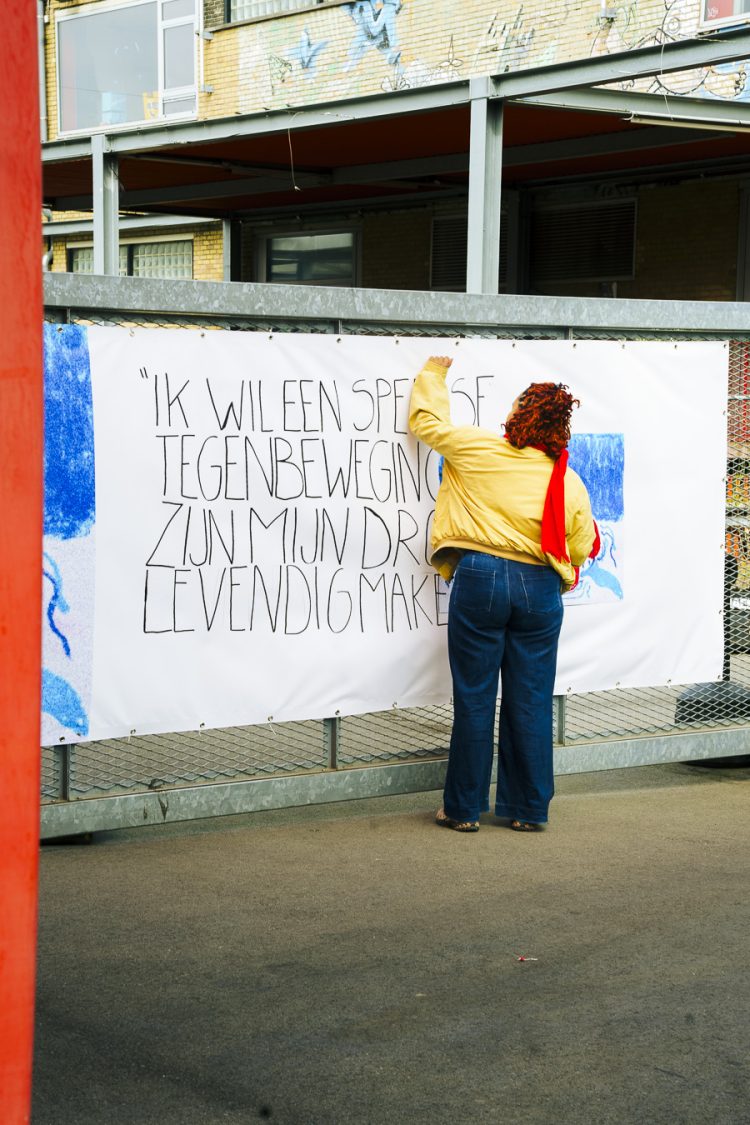 "IK WIL EEN SPEELSE
TEGENBEWEGING
ZIJN MIJN
LEVENDIG MAKE